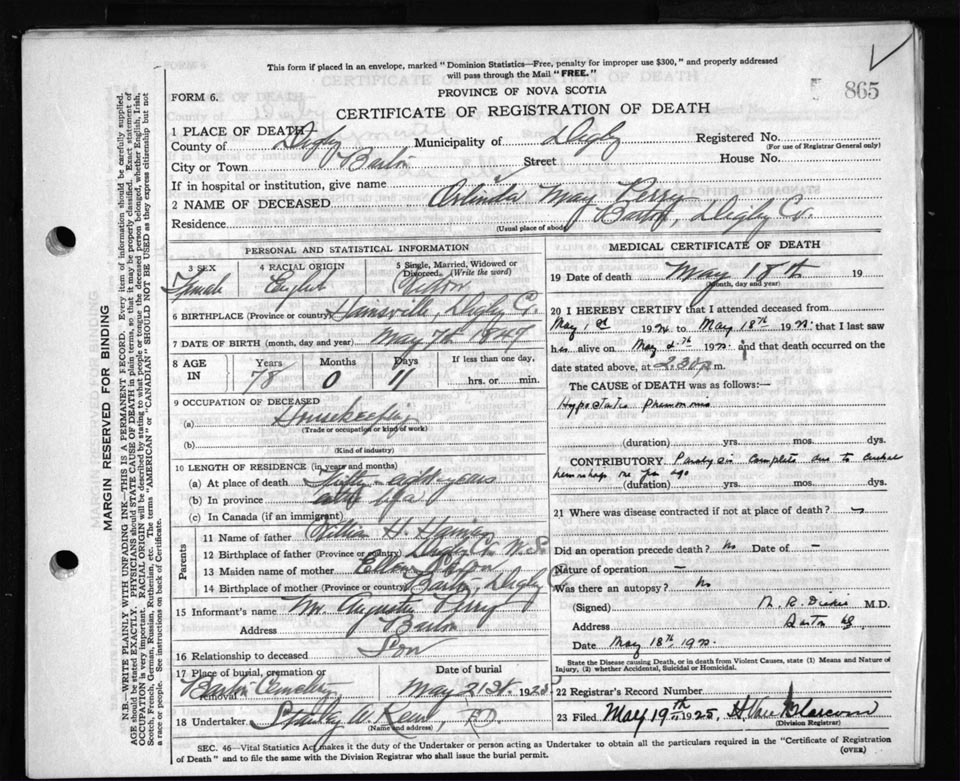 This form if placed in an envelope, marked "Dominion Statistics—Free, penalty for improper use $300," and properly addressed
will pass through the Mail "FREE."
865
PROVINCE OF NOVA SCOTIA
FORM 6.
CERTIFICATE OF REGISTRATION OF DEATH
1 PLACE OF DEATH
County of Digby Municipality of Digby Registered No.
(For use of Registrar General only)
City or Town Barton Street House No.
If in hospital or institution, give name
2 NAME OF DECEASED Orlinda May Perry
Residence Barton, Digby Co.
(Usual place of abode)
PERSONAL AND STATISTICAL INFORMATION
3 SEX 4 RACIAL ORIGIN 5 Single, Married, Widowed or Divorced. (Write the word)
Female English
6 BIRTHPLACE (Province or country) Hainsville, Digby Co.
7 DATE OF BIRTH (month, day and year) May 7th 1847
8 AGE IN Years Months Days If less than one day,
78 0 11 hrs. or min.
9 OCCUPATION OF DECEASED
(a) Housekeeping
(Trade or occupation or kind of work)
(b)
(Kind of industry)
10 LENGTH OF RESIDENCE (in years and months)
(a) At place of death Fifty-eight years
(b) In province life
(c) In Canada (if an immigrant)
Parents
11 Name of father William H.
12 Birthplace of father (Province or country) Digby Co. N.S.
13 Maiden name of mother Ellen
14 Birthplace of mother (Province or country) Barton, Digby Co
15 Informant's name Mr. Perry
Address Barton
16 Relationship to deceased Son
17 Place of burial, cremation or removal Date of burial
Barton Cemetery May 21st. 1925
18 Undertaker W.
(Name and address)
MEDICAL CERTIFICATE OF DEATH
19 Date of death May 18th 19
(Month, day and year)
20 I HEREBY CERTIFY that I attended deceased from
May 1st 19 to May 18th 19 that I last saw
h alive on May 19 and that death occurred on the
date stated above, at 2.30 p.m.
The CAUSE of DEATH was as follows:—
Hypostatic
(duration) yrs. mos. dys.
CONTRIBUTORY Paralysis complete due to
one ago
(duration) yrs. mos. dys.
21 Where was disease contracted if not at place of death?
Did an operation precede death? No Date of —
Nature of operation —
Was there an autopsy? No
(Signed) R. M.D.
Address Barton
Date May 18th 19
State the Disease causing Death, or in death from Violent Causes, state (1) Means and Nature of
Injury, (2) whether Accidental, Suicidal or Homicidal.
22 Registrar's Record Number
23 Filed May 19th 1925,
(Division Registrar)
SEC. 46—Vital Statistics Act makes it the duty of the Undertaker or person acting as Undertaker to obtain all the particulars required in the "Certificate of Registration
of Death" and to file the same with the Division Registrar who shall issue the burial permit.
(OVER)
MARGIN RESERVED FOR BINDING
N.B.—WRITE PLAINLY WITH UNFADING INK—THIS IS A PERMANENT RECORD. Every item of information should be carefully supplied.
AGE should be stated EXACTLY. PHYSICIANS should STATE CAUSE OF DEATH in plain terms, so that it may be properly classified. Exact statement of
OCCUPATION is very important. RACIAL ORIGIN will be described by stating to what people or tongue the deceased person belonged, whether English, Irish,
Scotch, French, German, Russian, Ruthenian, etc. The terms "AMERICAN" or "CANADIAN" SHOULD NOT BE USED as they express citizenship but not
a race or people. See instructions on back of Certificate.